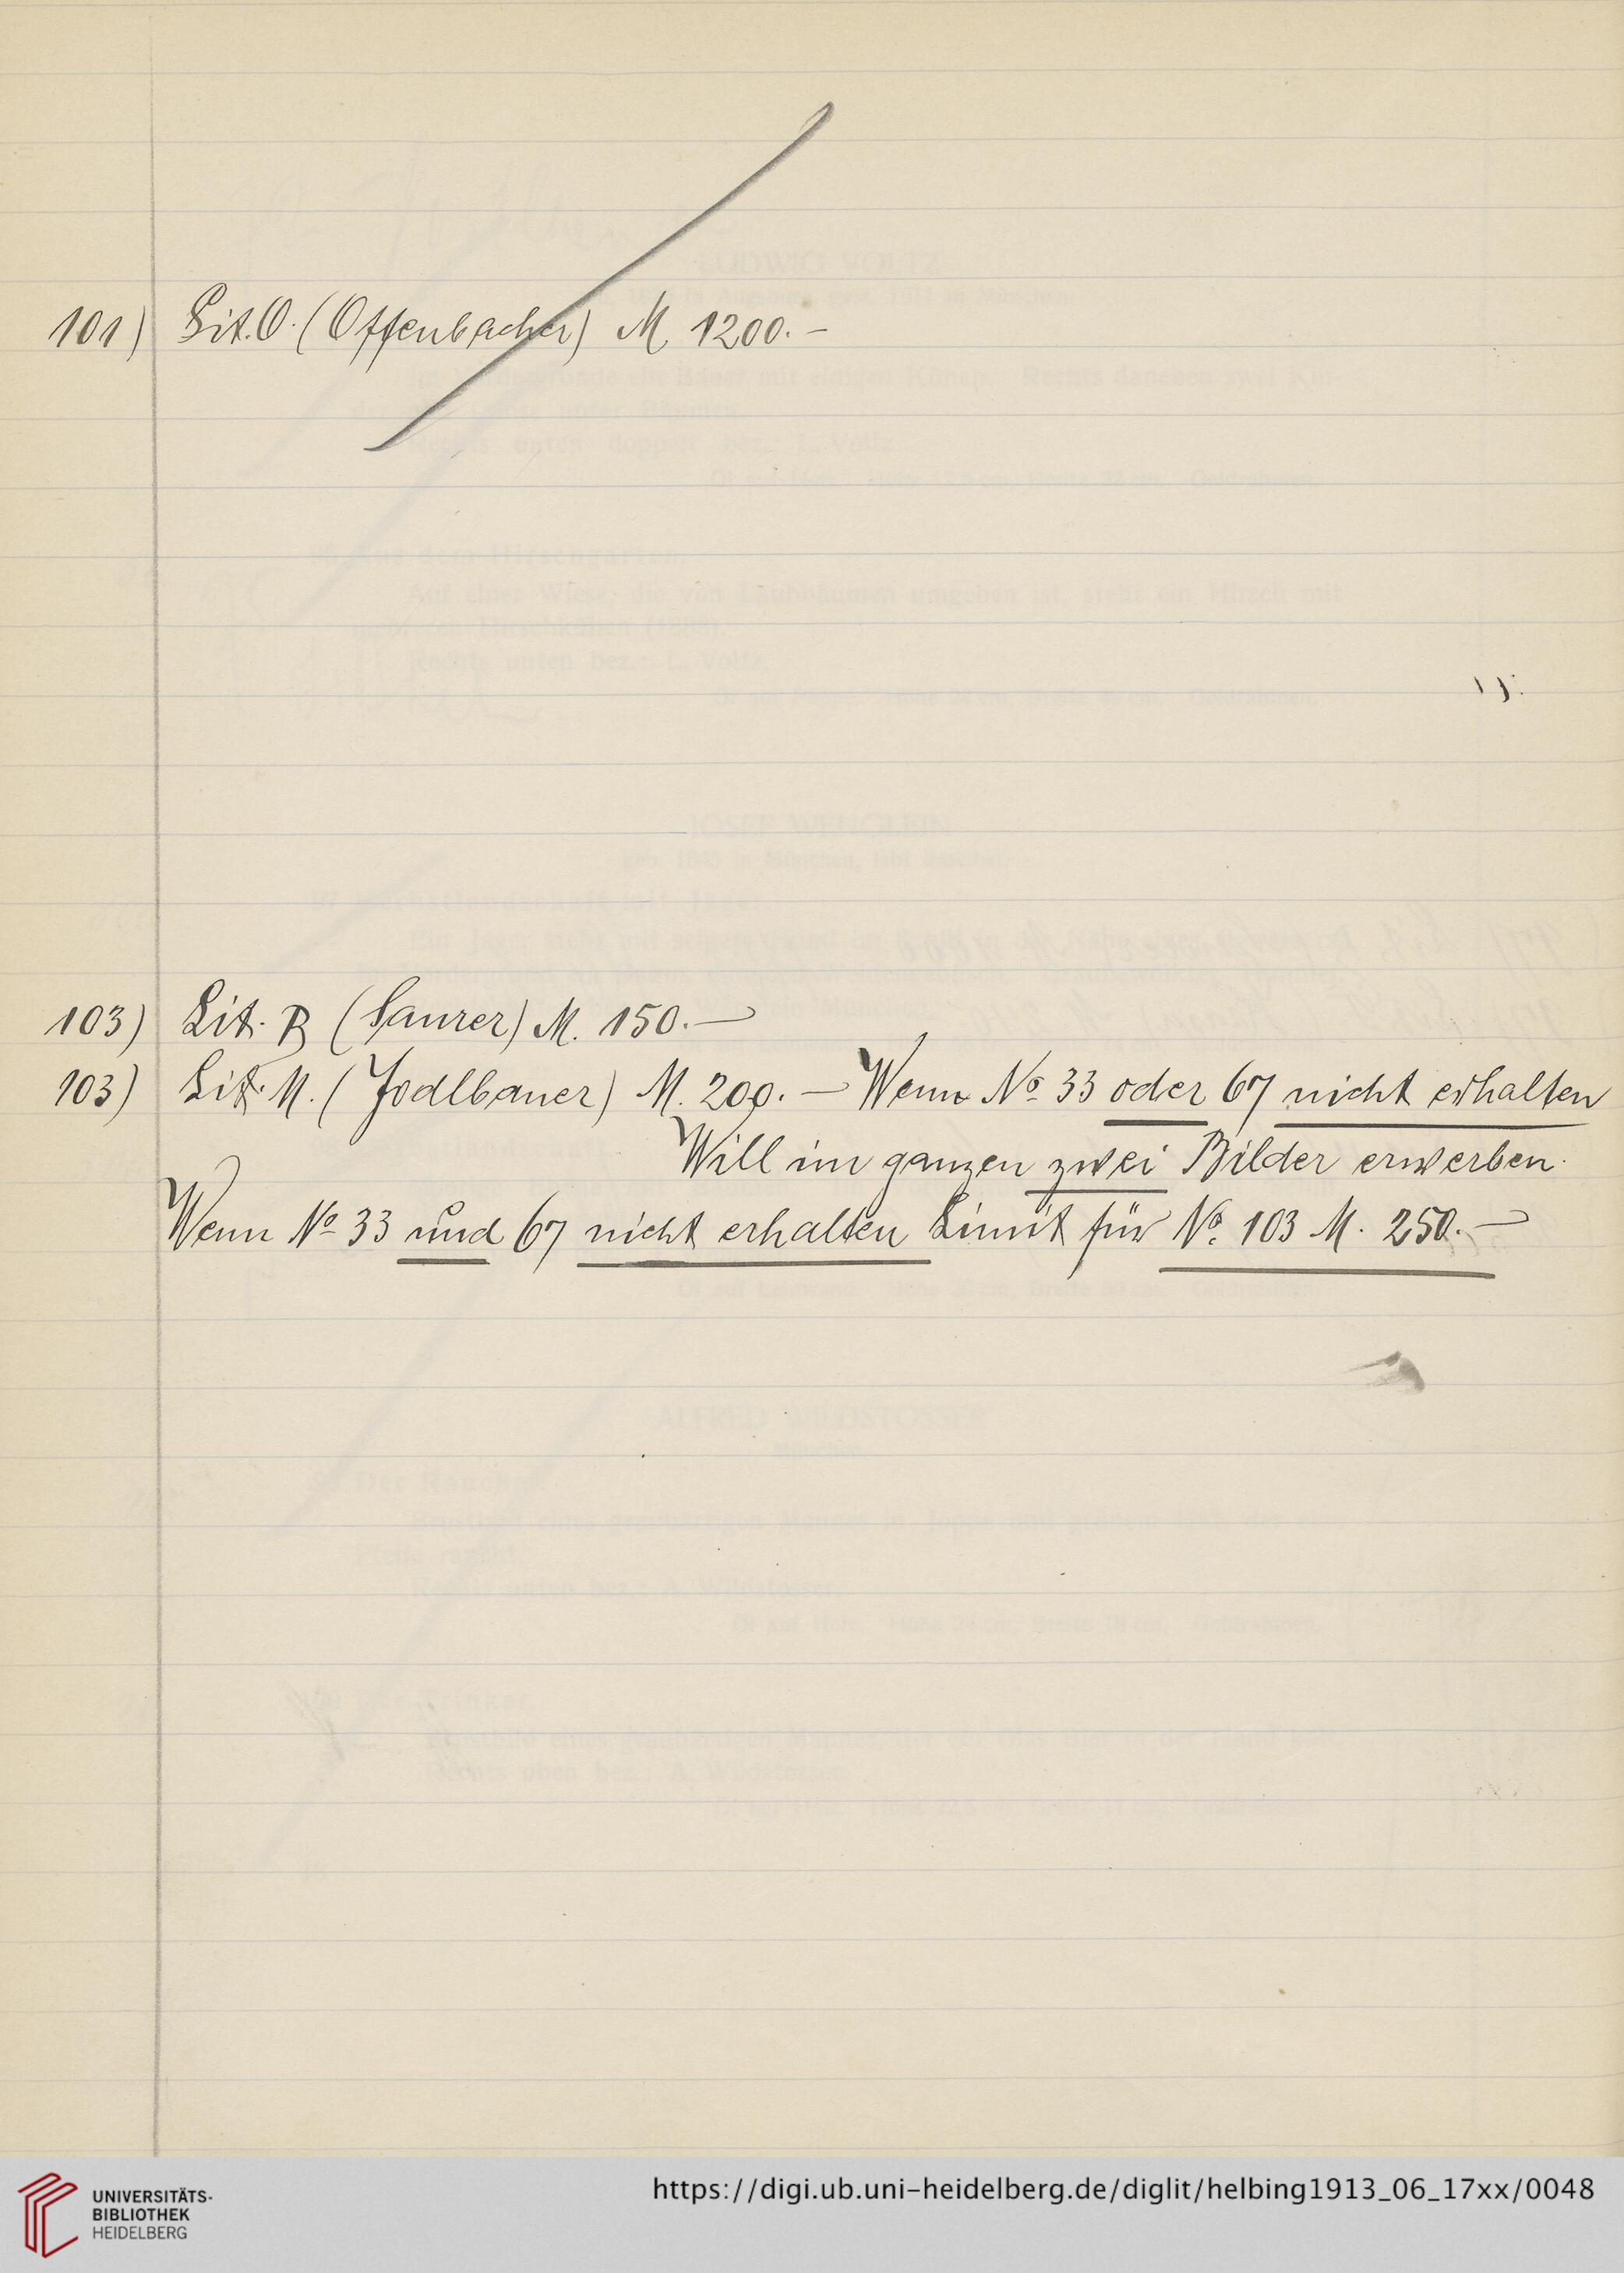 101) Lit. O. (Offenbacher) M. 1200.-
103) Lit. B (Saurer) M. 150.—
103) Lit. M. (Jodlbauer) M. 200.— Wenn No 33 oder 67 nicht erhalten
Will im ganzen zwei Bilder erwerben.
Wenn No 33 und 67 nicht erhalten Limit für No. 103 M. 250.—
UNIVERSITÄTS-
BIBLIOTHEK
HEIDELBERG
https://digi.ub.uni-heidelberg.de/diglit/helbing1913_06_17xx/0048